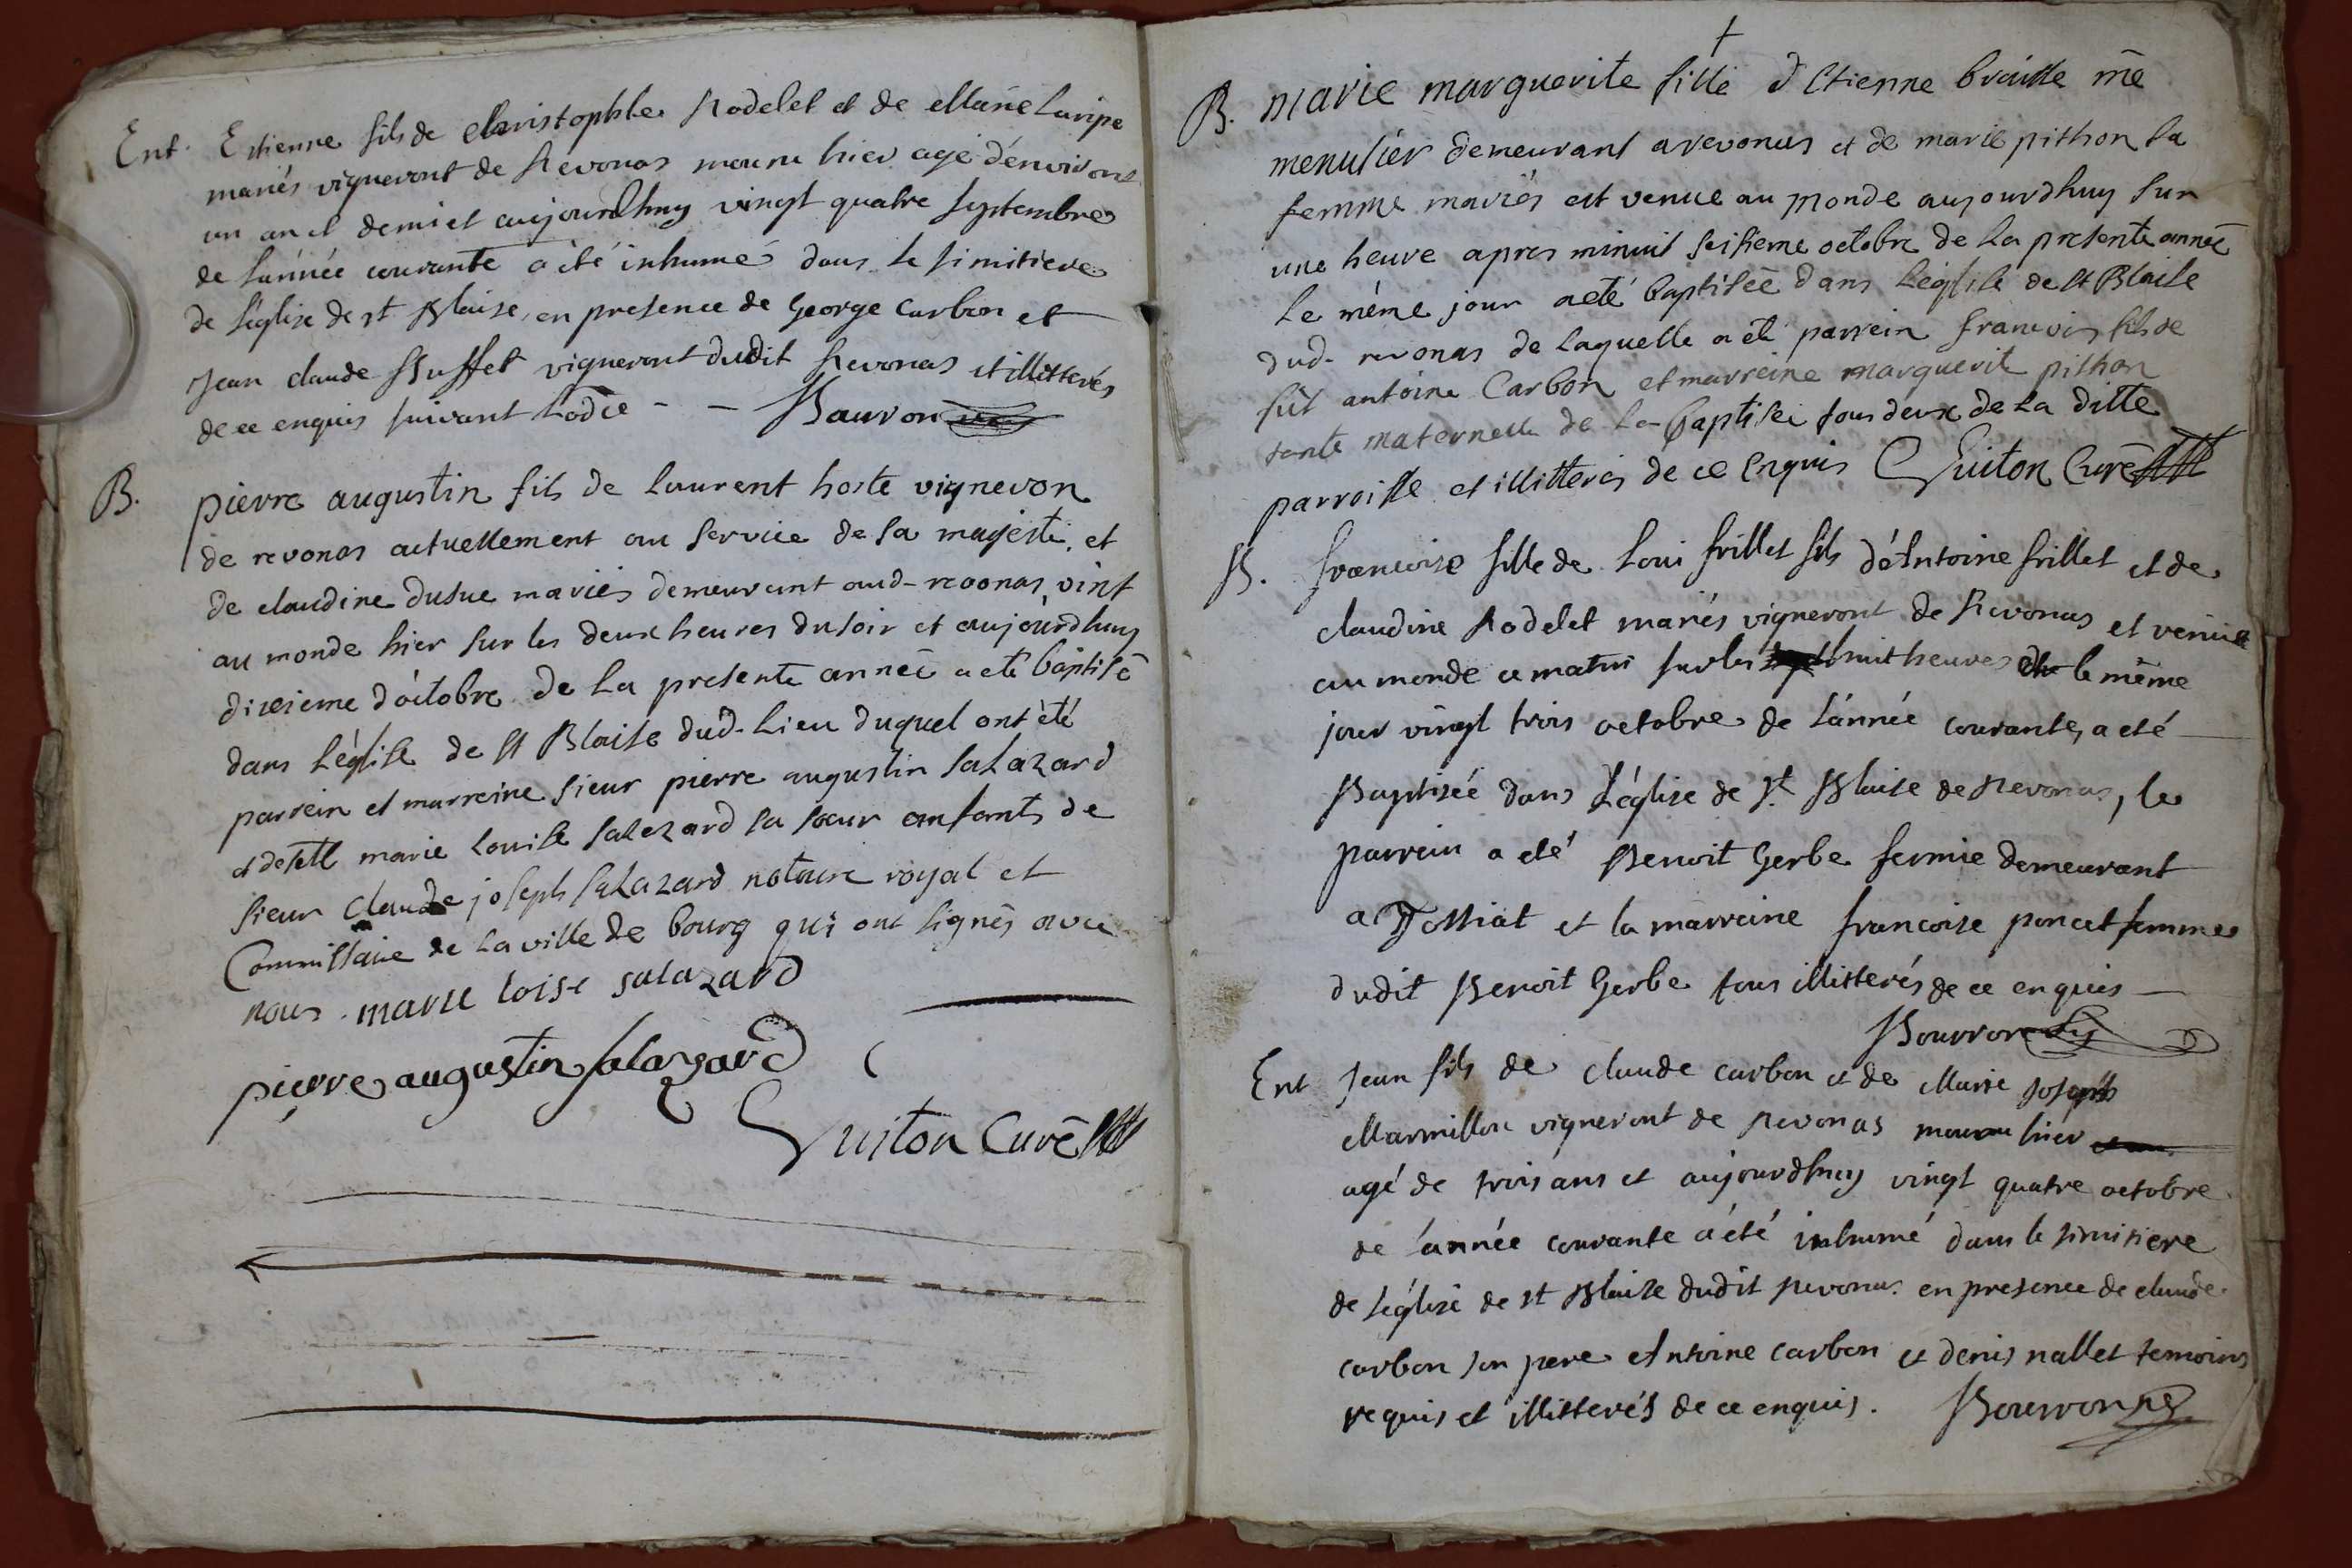 Ent. Estienne fils de Christophle Rodelet et de Marie Laripe
mariés vigneront de Revonas mouru hier agé d'environs
un an et demi et aujourdhuy vingt quatre septembre
de lánnée courante a été inhumé dans le simitiere
de l'église de st Blaise, en presence de George Carbon et
Jean claude Buffet vigneront dudit Revonas et illitterés
de ce enquis suivant Lodce - - Bouvron
B. pierre augustin fils de Laurent hoste vigneron
de revonas actuellement au service de sa majesté, et
de claudine dusue mariés demeurant aud- revonas, vint
au monde hier sur les deux heures du soir et aujourdhuy
dixieme d'octobre de la presente année a eté baptisé
dans L'église de st Blaise dud. Lieu duquel ont été
parrein et marreine sieur pierre augustin salazard
et deselle marie Louise salazard sa soeur enfants de
sieur claude joseph salazard notaire royal et
Commissaire de la ville de bourg qui ont signés avec
nous . marie loise salazard
pierre augustin salazard
Guiton Curé
B. marie marguerite fille d'Etienne braisse me
menusier demeurant a revonas et de marie pithon sa
femme mariés est venue au monde aujourdhuy sur
une heure apres minuit seisieme octobre de la presente année
Le même jour a eté baptisée dans L'église de st Blaise
dud- revonas de laquelle a été parrein francois fils de
fut antoine Carbon et marreine marguerite pithon
tante maternelle de la baptisée tous deux de la ditte
parroisse et illitterés de ce enquis Guiton Curé
B. francoise fille de Loui frillet fils d'Antoine frillet et de
claudine Rodelet mariés vigneront de Revonas et venue
au monde ce matin sur les huit heures le même
jour vingt trois octobre de lánnée courante, a eté
Baptisée dans L'église de st Blaise de Revonas, le
parrein a eté Benoit Gerbe fermie demeurant
a Tossiat et la marreine francoise poncet femme
dudit Benoit Gerbe tous illitterés de ce enquis
Bouvron
Ent Jean fils de claude carbon et de Marie Joseph
Marmillon vigneront de Revonas mouru hier
agé de trois ans et aujourdhuy vingt quatre octobre
de lánnée courante a été inhumé dans le simitiere
de l'église de st Blaise dudit Revonas. en presence de claude
carbon son pere Antoine carbon et denis nallet temoins
requis et illitterés de ce enquis. Bouvron